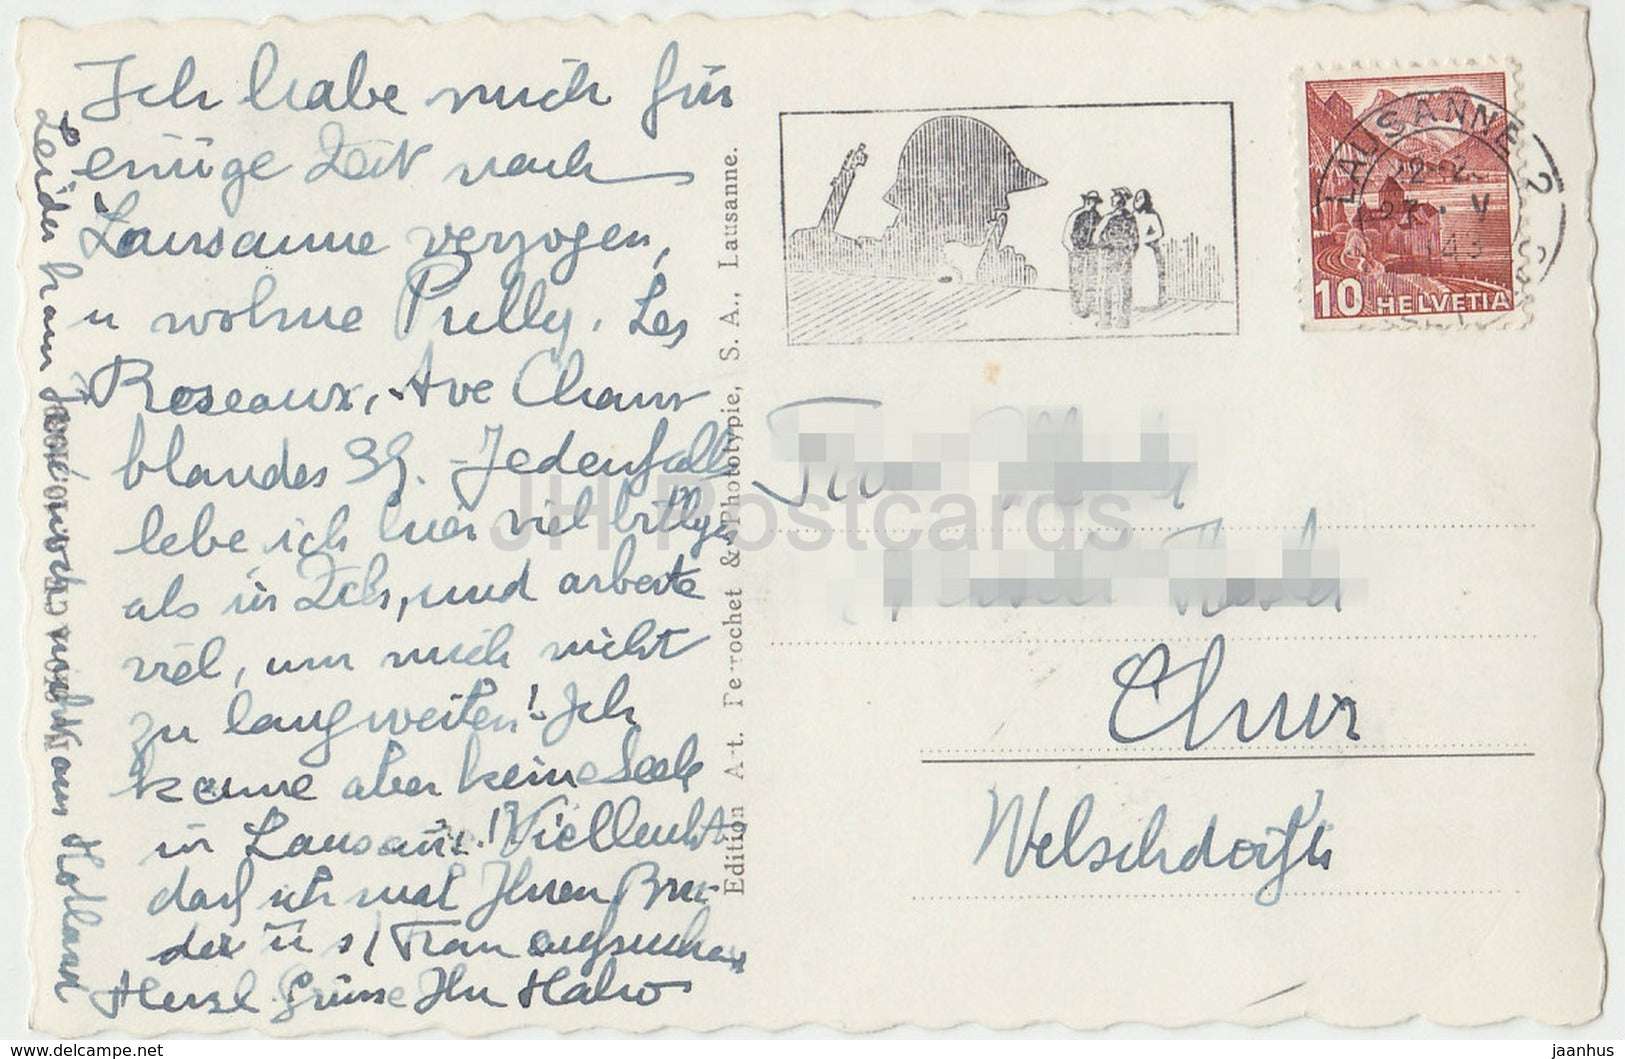 Ich habe mich für
einige Zeit nach
Lausanne verzogen,
u wohne Pully, Les
Roseaux, Ave Cham
blandes 39. Jedenfalls
lebe ich hier viel billiger
als in Zch, und arbeite
viel, um mich nicht
zu langweilen! Ich
kenne aber keine Seele
in Lausanne! Vielleicht
darf ich mal Ihren Bru-
der u s/ Frau aufsuchen
Herzl. Grüsse Ihr
Leider kam nicht aus Holland
Edition Art. Perrochet & Phototypie, S. A., Lausanne.
LAUSANNE 2
23. V
10 HELVETIA
Chur
Welschdörfli
JH Postcards
www.delcampe.net
jaanhus